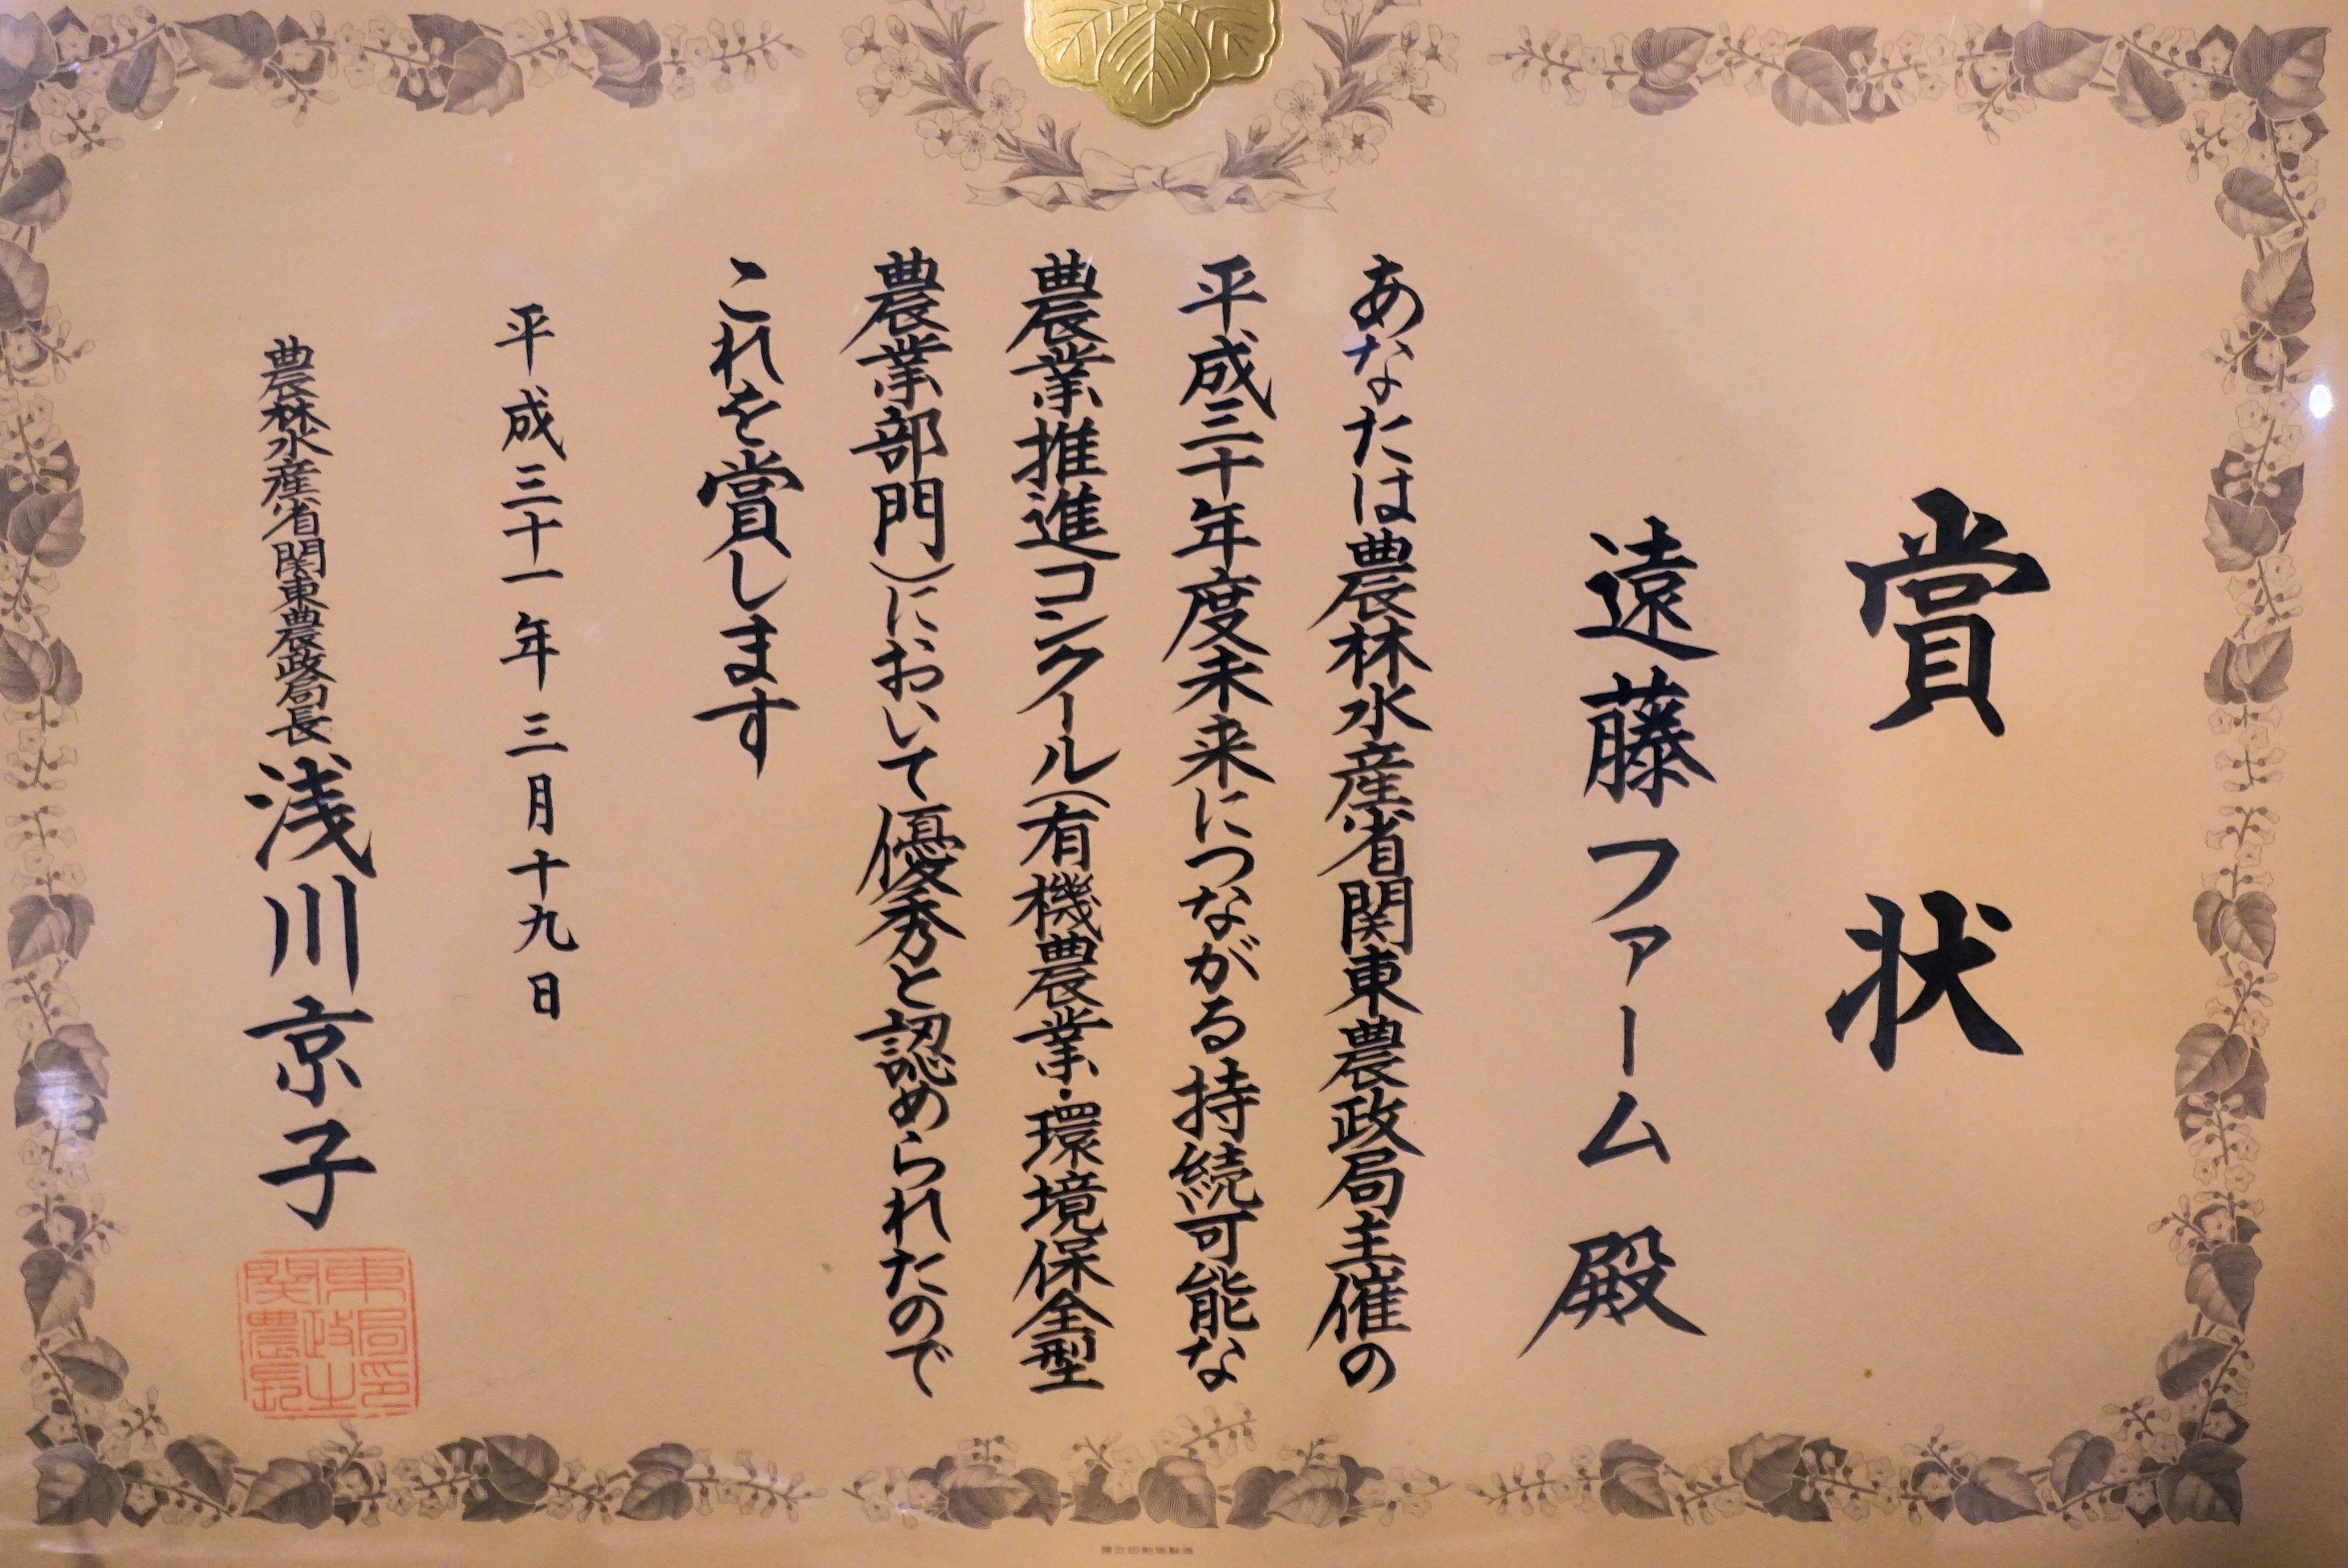 賞状
遠藤ファーム 殿
あなたは農林水産省関東農政局主催の
平成三十年度未来につながる持続可能な
農業推進コンクール(有機農業・環境保全型
農業部門)において優秀と認められたので
これを賞します
平成三十一年三月十九日
農林水産省関東農政局長 浅川京子